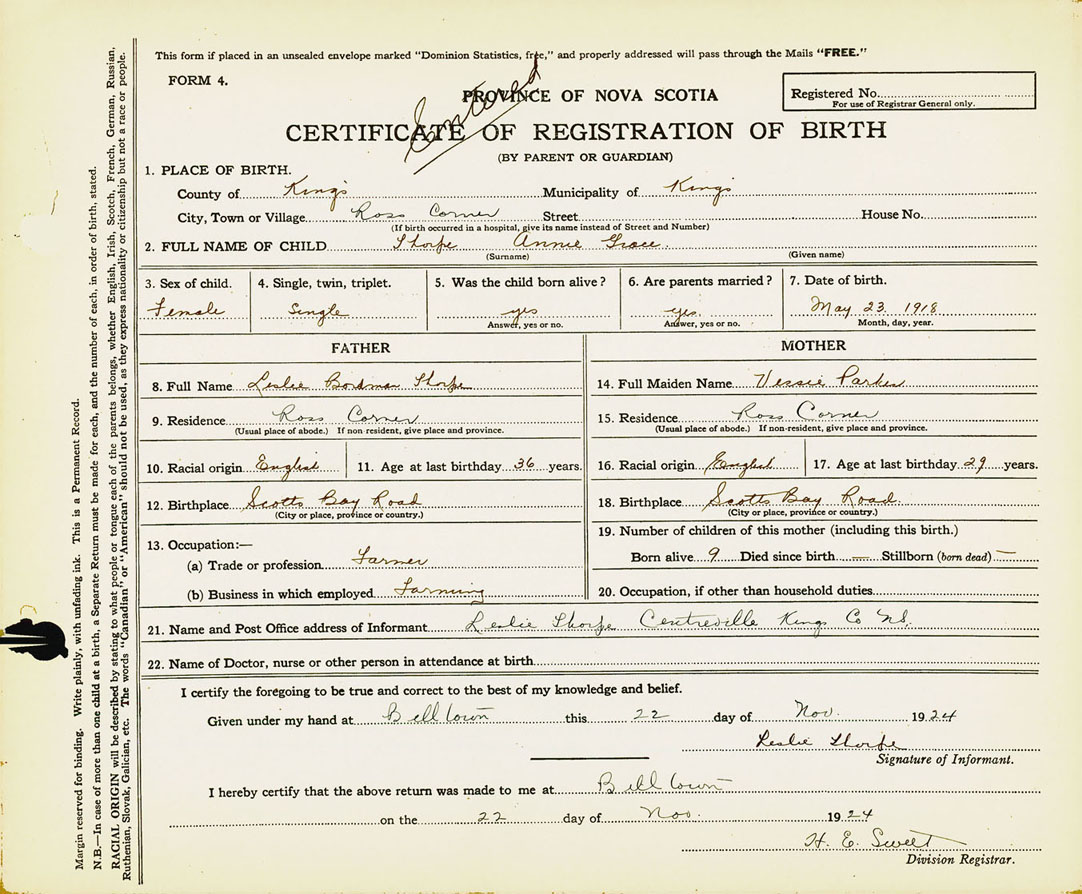 This form if placed in an unsealed envelope marked "Dominion Statistics, free," and properly addressed will pass through the Mails "FREE."
FORM 4.
Entered
PROVINCE OF NOVA SCOTIA
Registered No.
For use of Registrar General only.
CERTIFICATE OF REGISTRATION OF BIRTH
(BY PARENT OR GUARDIAN)
1. PLACE OF BIRTH.
County of Kings Municipality of Kings
City, Town or Village Ross Corner Street House No.
(If birth occurred in a hospital, give its name instead of Street and Number)
2. FULL NAME OF CHILD Thorpe Annie Grace.
(Surname) (Given name)
3. Sex of child. 4. Single, twin, triplet. 5. Was the child born alive? 6. Are parents married? 7. Date of birth.
Female Single yes yes. May 23 1918
Answer, yes or no. Answer, yes or no. Month, day, year.
FATHER
8. Full Name Leslie Bordman Thorpe
9. Residence Ross Corner
(Usual place of abode.) If non-resident, give place and province.
10. Racial origin English 11. Age at last birthday 36 years.
12. Birthplace Scotts Bay Road
(City or place, province or country.)
13. Occupation:—
(a) Trade or profession Farmer
(b) Business in which employed Farming
MOTHER
14. Full Maiden Name Vessie Parker
15. Residence Ross Corner
(Usual place of abode.) If non-resident, give place and province.
16. Racial origin English 17. Age at last birthday 29 years.
18. Birthplace Scotts Bay Road.
(City or place, province or country.)
19. Number of children of this mother (including this birth.)
Born alive 9 Died since birth — Stillborn (born dead) —
20. Occupation, if other than household duties
21. Name and Post Office address of Informant Leslie Thorpe Centreville Kings Co NS.
22. Name of Doctor, nurse or other person in attendance at birth
I certify the foregoing to be true and correct to the best of my knowledge and belief.
Given under my hand at Bell town this 22 day of Nov. 1924
Leslie Thorpe
Signature of Informant.
I hereby certify that the above return was made to me at Bell town
on the 22 day of Nov. 1924
H. E. Sweet
Division Registrar.
Margin reserved for binding. Write plainly, with unfading ink. This is a Permanent Record.
N.B.—In case of more than one child at a birth, a Separate Return must be made for each, and the number of each, in order of birth, stated.
RACIAL ORIGIN will be described by stating to what people or tongue each of the parents belongs, whether English, Irish, Scotch, French, German, Russian,
Ruthenian, Slovak, Galician, etc. The words "Canadian" or "American" should not be used, as they express nationality or citizenship but not a race or people.